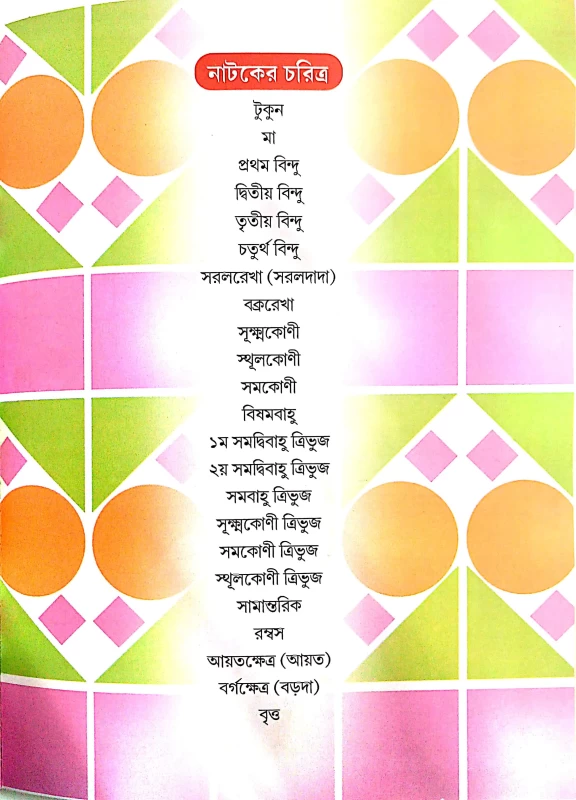 নাটকের চরিত্র
টুকুন
মা
প্রথম বিন্দু
দ্বিতীয় বিন্দু
তৃতীয় বিন্দু
চতুর্থ বিন্দু
সরলরেখা (সরলদাদা)
বক্ররেখা
সূক্ষ্মকোণী
স্থূলকোণী
সমকোণী
বিষমবাহু
১ম সমদ্বিবাহু ত্রিভুজ
২য় সমদ্বিবাহু ত্রিভুজ
সমবাহু ত্রিভুজ
সূক্ষ্মকোণী ত্রিভুজ
সমকোণী ত্রিভুজ
স্থূলকোণী ত্রিভুজ
সামান্তরিক
রম্বস
আয়তক্ষেত্র (আয়ত)
বর্গক্ষেত্র (বড়দা)
বৃত্ত